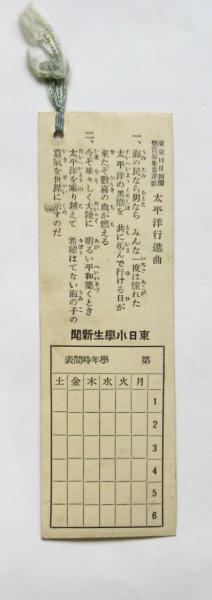 東京日日新聞
太平洋行進曲
一、海の民なら男なら みんな一度は憧れた
太平洋の黒潮を 共に勇んで行ける日が
来たぞ歡喜の血が燃える
二、今ぞ雄々しく大陸に 明るい平和築くとき
太平洋を乘り越えて 希望はてない海の子の
意氣を世界に示すのだ
東日小學生新聞
第 學年時間表
月 火 水 木 金 土
1
2
3
4
5
6